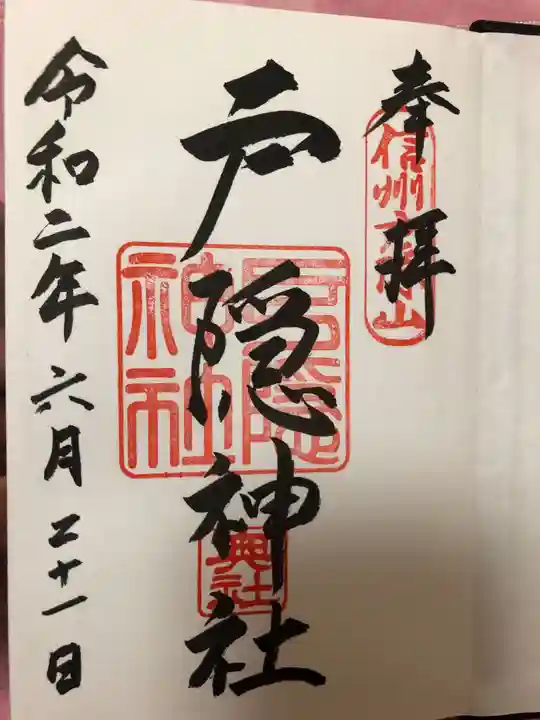 奉拝
信州戸隠山
戸隠神社
戸隠
神社
奥社
令和二年六月二十一日